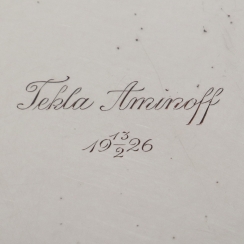 Tekla Aminoff
19 13/2 26